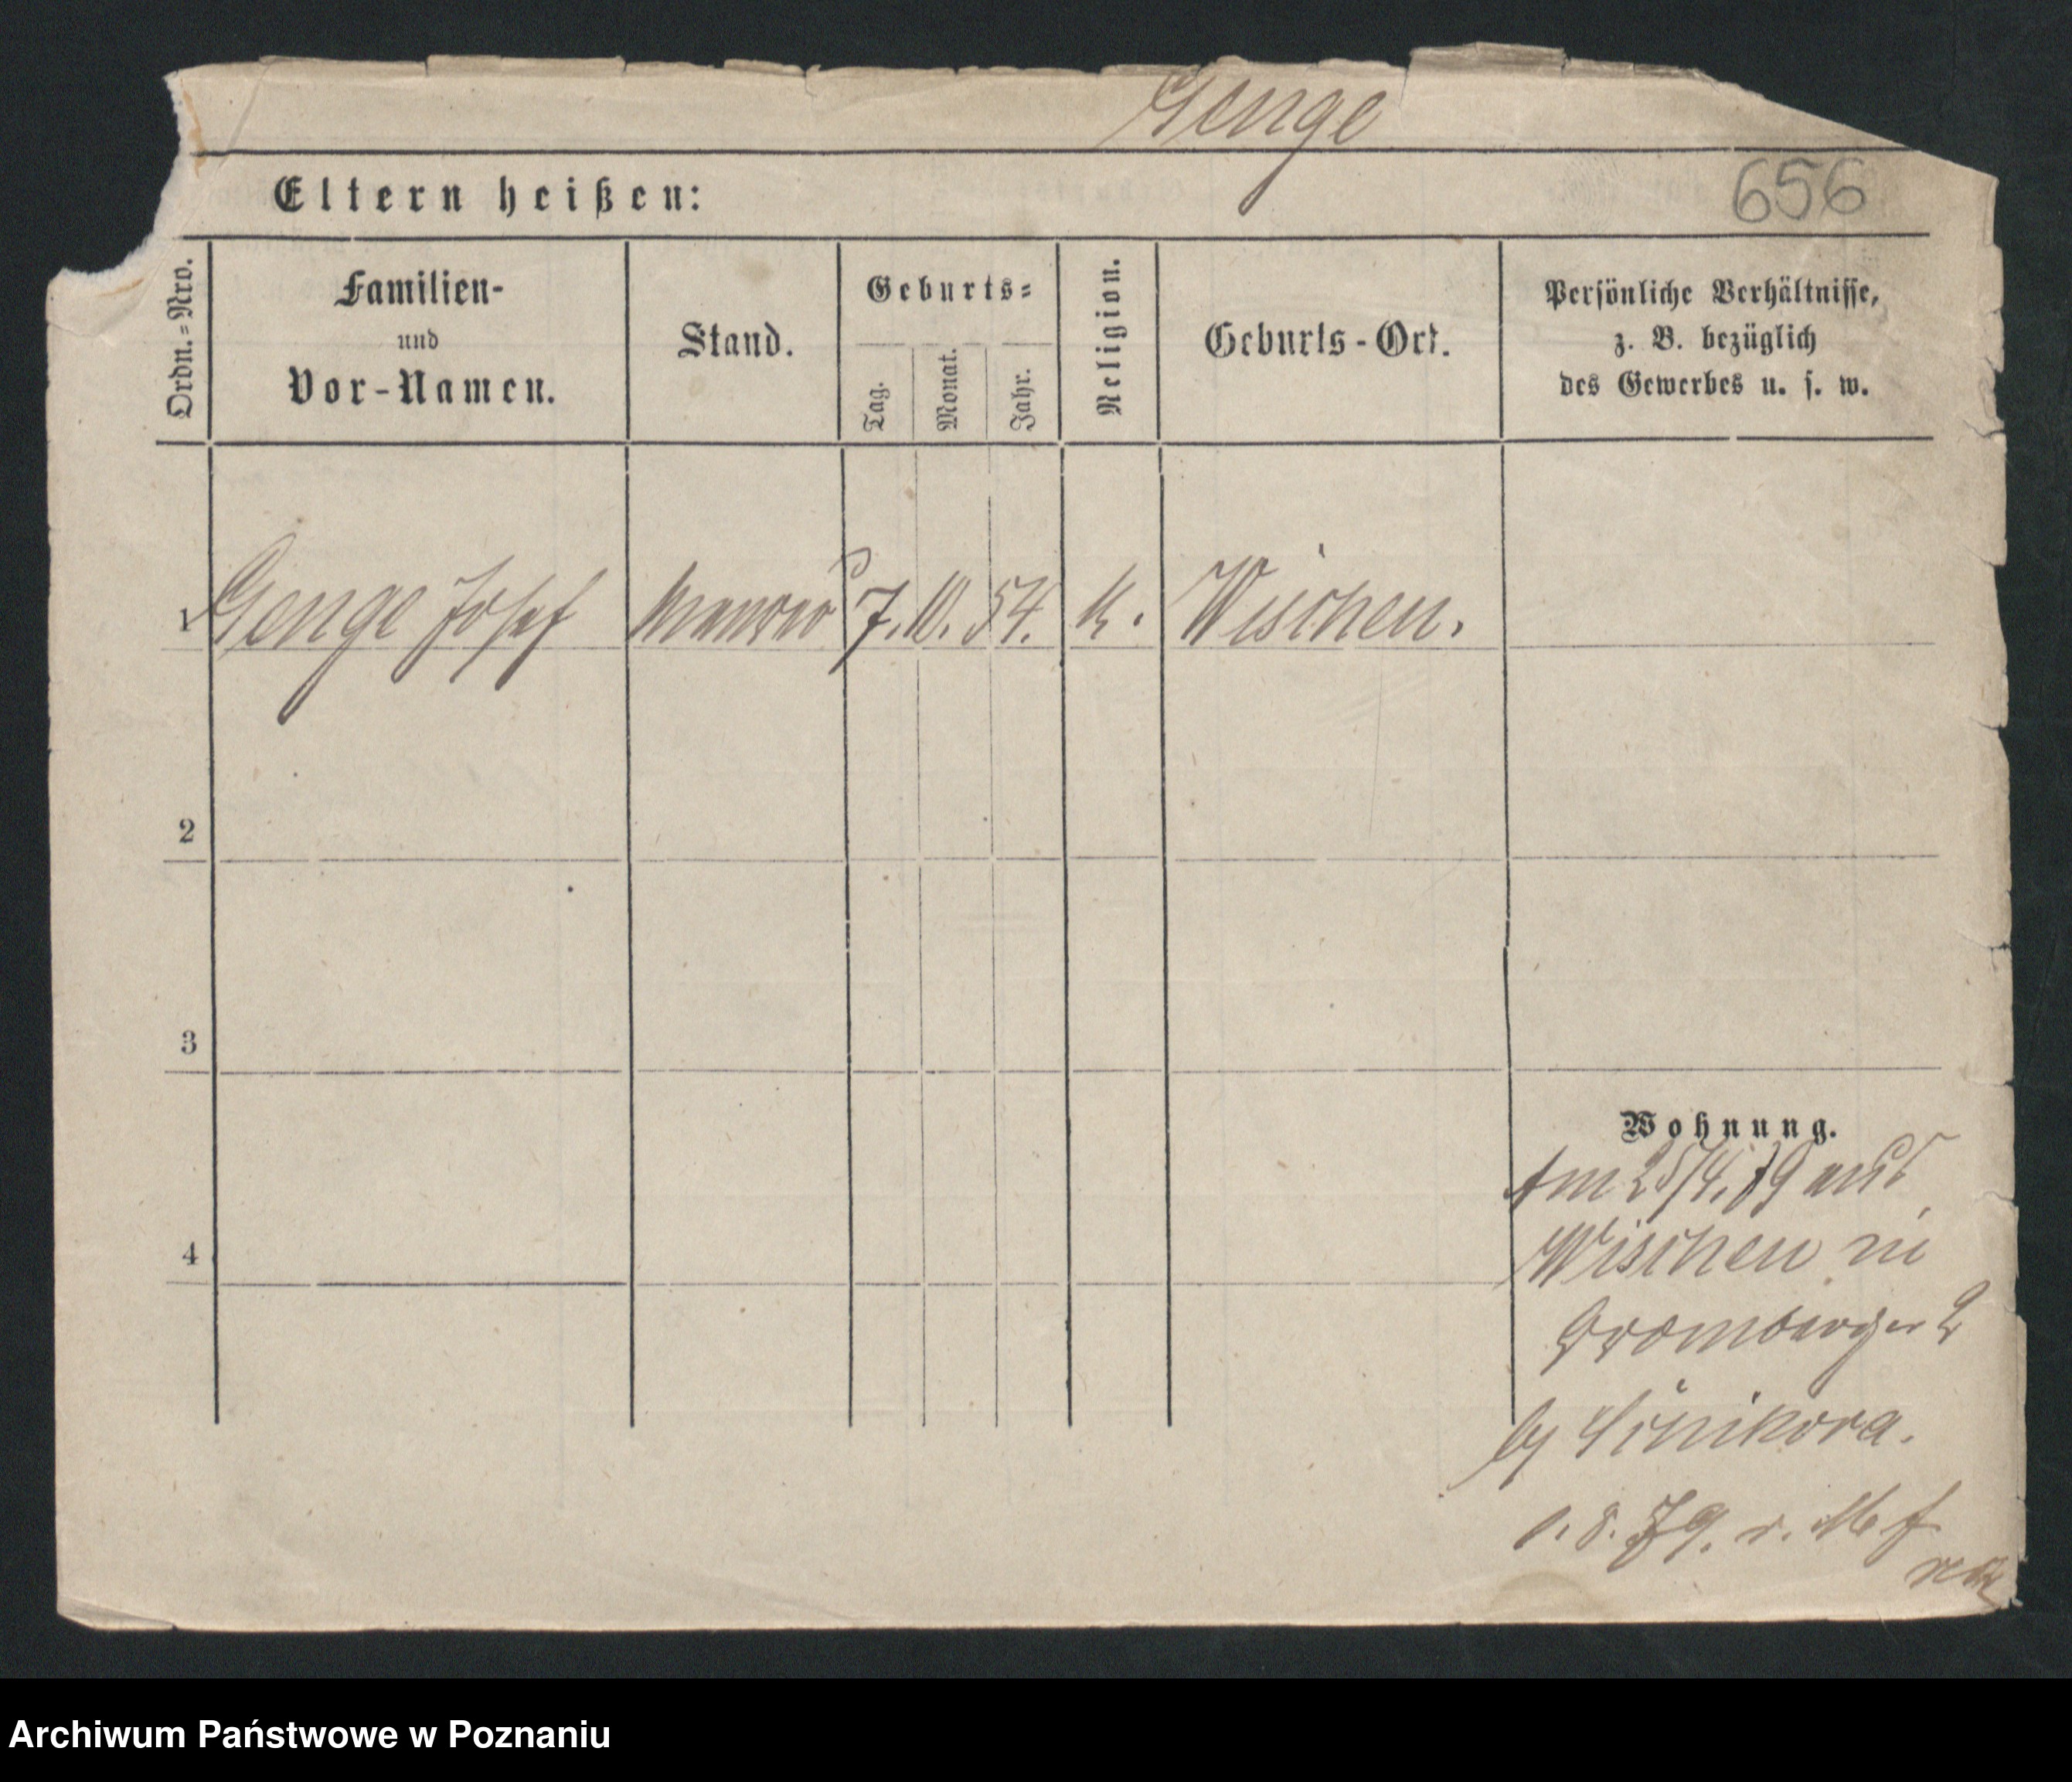 Genge
656
Eltern heißen:
Ordn.=Nro.
Familien-
und
Vor-Namen.
Stand.
Geburts=
Tag.
Monat.
Jahr.
Religion.
Geburts-Ort.
Persönliche Verhältnisse,
z. B. bezüglich
des Gewerbes u. s. w.
1 Genge Josef 7. 10. 54. k. Wischen.
2
3
4
Wohnung.
Am 25/4. 79 aus
Wischen in
2
by
1. 8. 79.
Archiwum Państwowe w Poznaniu